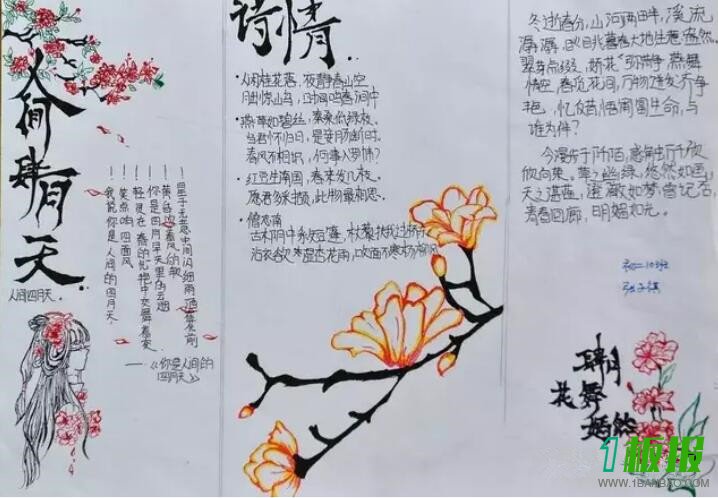 人间肆月天
人间四月天。
我说你是人间的四月天，
笑点响四面风
轻灵在春的光艳中交舞着变
你是四月早天里的云烟
黄昏吹着风的软
星子无意中间闪细雨滴在花前
——《你是人间的
四月天》
诗情
·人闲桂花落，夜静春山空
月出惊山鸟，时鸣春涧中
·燕草如碧丝，秦桑低绿枝。
当君怀归日，是妾断肠时。
春风不相识，何事入罗帏？
·红豆生南国，春来发几枝。
愿君多采撷，此物最相思。
·僧志南
古木阴中系短篷，杖藜扶我过桥东
沾衣欲湿杏花雨，吹面不寒杨柳风
冬逝春分，山河两畔，溪流
潺潺，
翠芽点缀，娇花
悟空，春观花间，万物迸发，争争
艳，忆及昔悟雨圈生命，与
谁为伴？
今漫步于阡陌，感
欣向荣。草之幽绿，悠然如画，
天之湛蓝，澄澈如梦，曾记否
青春回廊，明媚如光。
初二10班
张子琪
肆月
花舞
嫣然
1板报
WWW.1BANBAO.COM